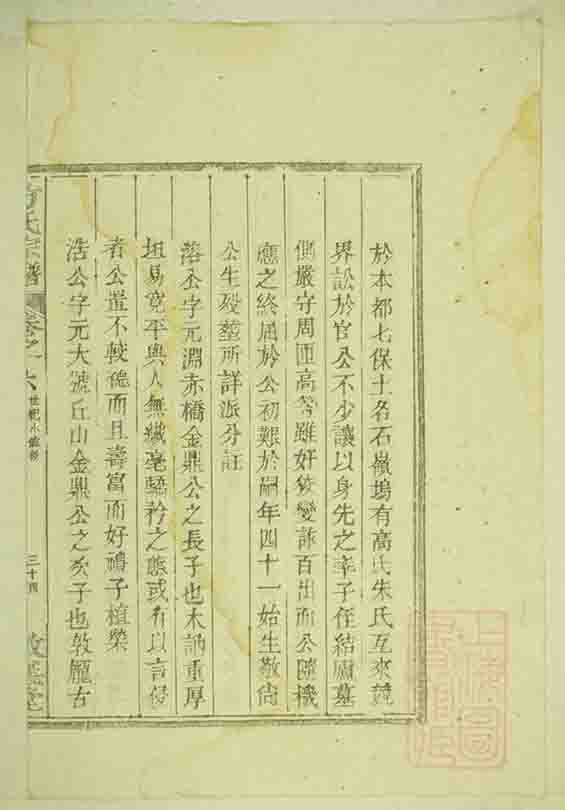 於本都七保土名石嶺塢有高氏朱氏互來競
界訟於官公不少讓以身先之率子侄結廬墓
側嚴守周匝高等雖奸狡變詐百出而公隨機
應之終屈於公初艱於嗣年四十一始生敬尚
公生歿塟所詳派分註
溶公字元淵赤橋金鼎公之長子也木訥重厚
坦易寬平與人無纖毫驕矜之態或有以言侵
者公置不較德而且壽富而好禮子植榮
浩公字元大號丘山金鼎公之次子也敦龐古
方氏宗譜
卷之十六
三十四